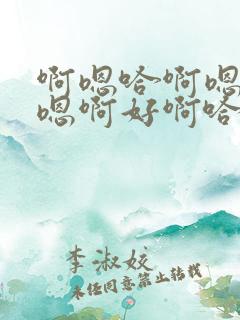 啊嗯哈啊嗯
嗯啊好啊哈
李淑姣
未经同意禁止转载